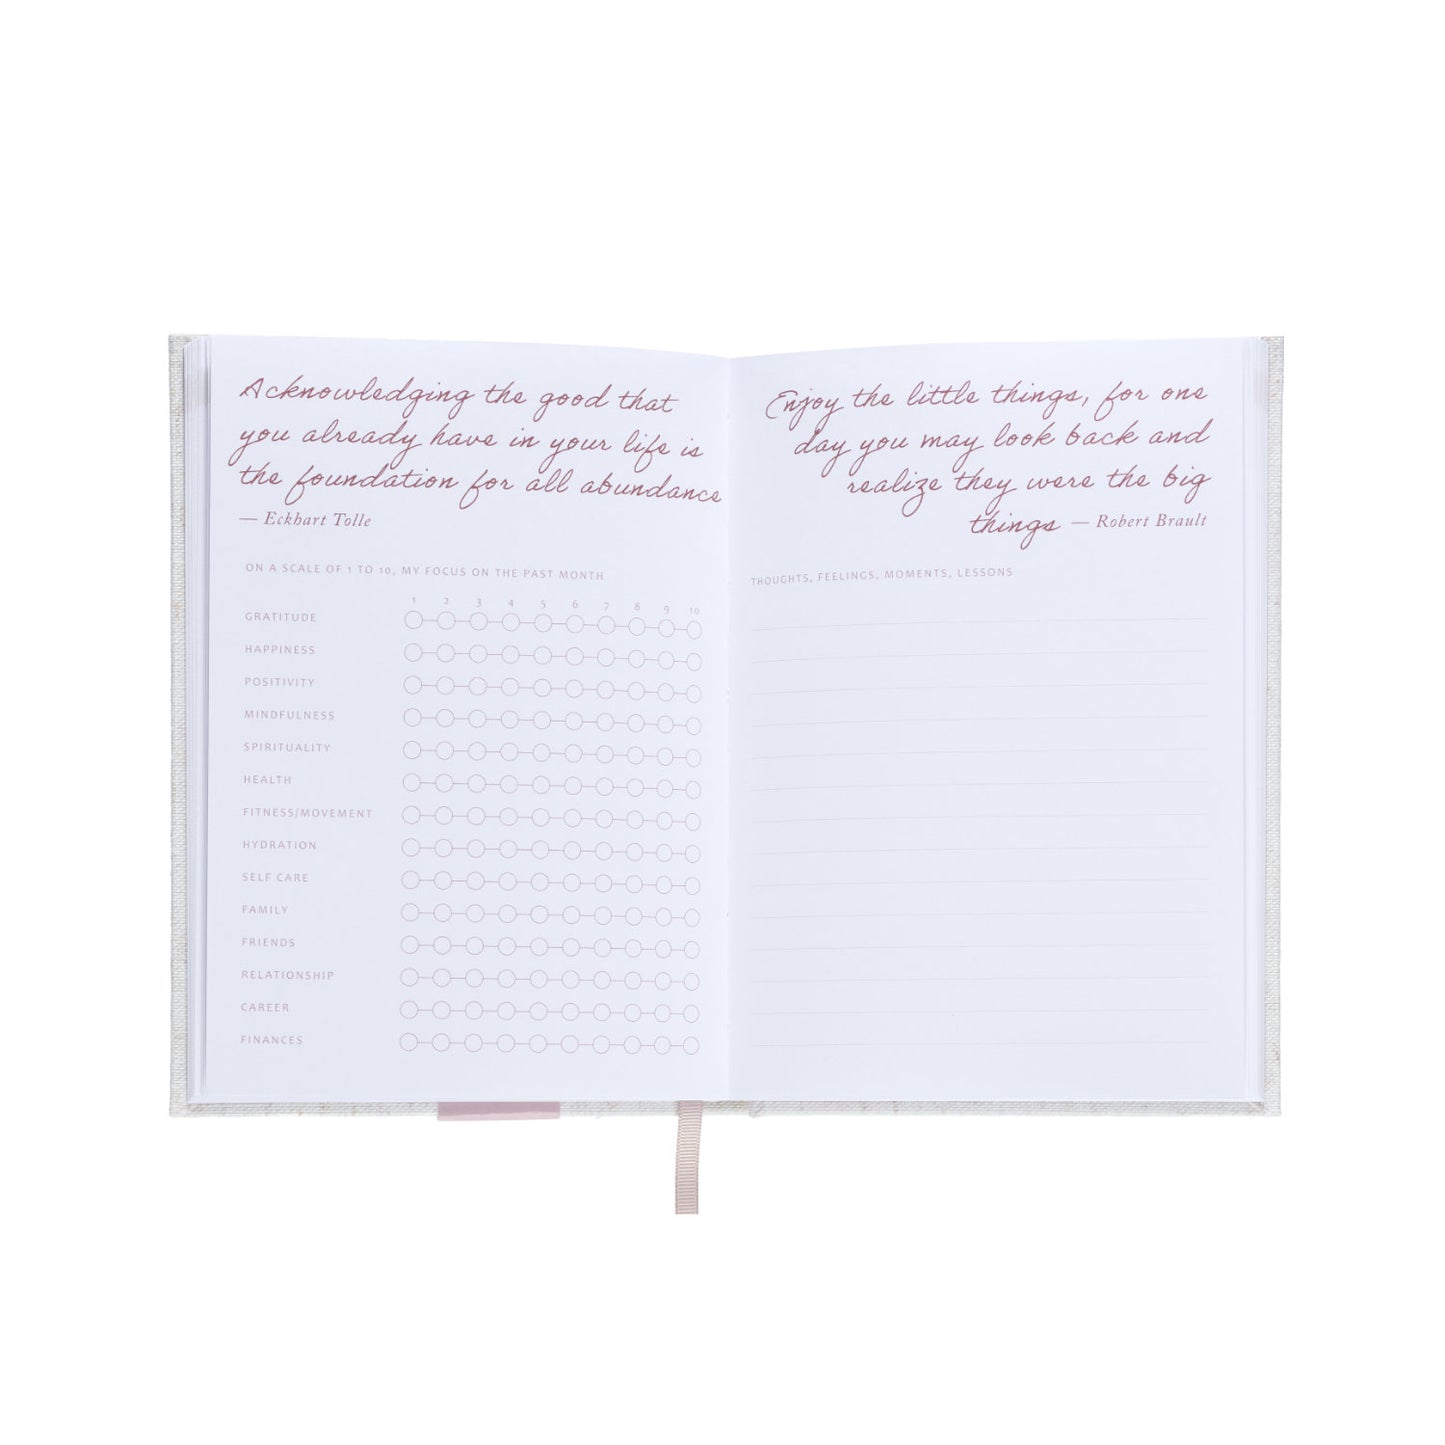 Acknowledging the good that
you already have in your life is
the foundation for all abundance
— Eckhart Tolle
ON A SCALE OF 1 TO 10, MY FOCUS ON THE PAST MONTH
1 2 3 4 5 6 7 8 9 10
GRATITUDE
HAPPINESS
POSITIVITY
MINDFULNESS
SPIRITUALITY
HEALTH
FITNESS/MOVEMENT
HYDRATION
SELF CARE
FAMILY
FRIENDS
RELATIONSHIP
CAREER
FINANCES
Enjoy the little things, for one
day you may look back and
realize they were the big
things — Robert Brault
THOUGHTS, FEELINGS, MOMENTS, LESSONS